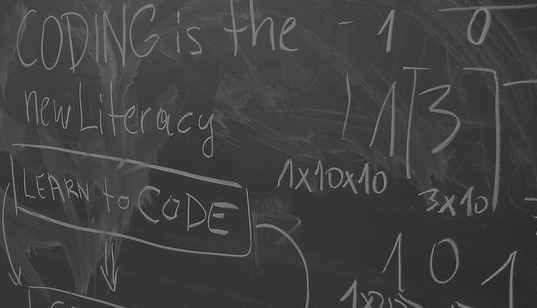 CODING is the
new Literacy
LEARN to CODE
- 1 0
1 3
1x10x10
3x10
1 0 1